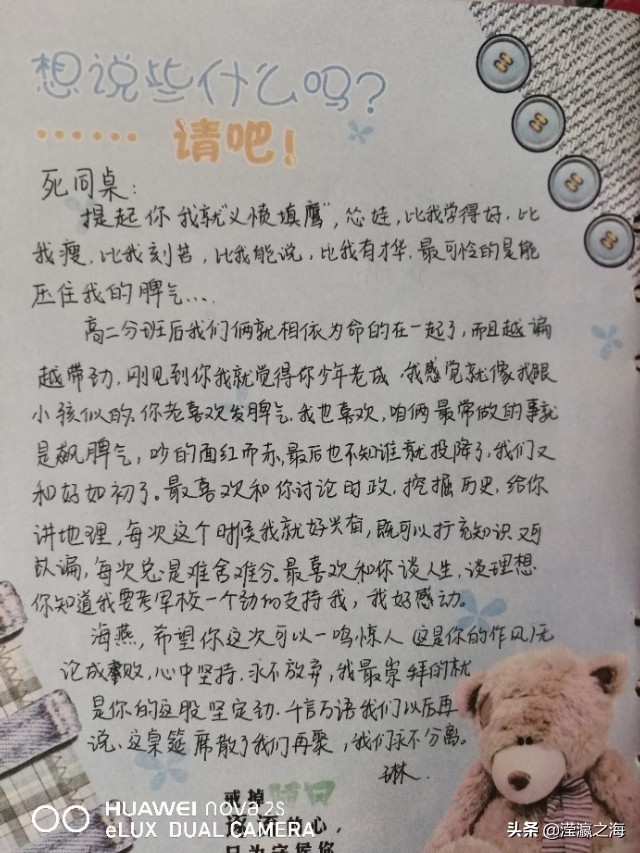 想说些什么吗?
······ 请吧!
死同桌:
提起你我就"义愤填鹰",怂娃,比我学得好,比
我瘦,比我刻苦,比我能说,比我有才华,最可怜的是能
压住我的脾气...
高二分班后我们俩就相依为命的在一起了,而且越谝
越带劲,刚见到你我就觉得你少年老成,我感觉就像我跟
小孩似的,你老喜欢发脾气,我也喜欢,咱俩最常做的事就
是飙脾气,吵的面红而赤,最后也不知谁就投降了,我们又
和好如初了。最喜欢和你讨论时政,挖掘历史,给你
讲地理,每次这个时候我就好兴奋,既可以扩充知识又可
以谝,每次总是难舍难分。最喜欢和你谈人生,谈理想
你知道我要考军校一个劲的支持我,我好感动。
海燕,希望你这次可以一鸣惊人 这是你的作风,无
论成败,心中坚持,永不放弃,我最崇拜的就
是你的这股坚定劲,千言万语我们以后再
说、这桌筵席散了我们再聚,我们永不分离。
琳.
戒掉
的心,
只为守候你
HUAWEI nova 2s
eLUX DUAL CAMERA
头条 @滢瀛之海